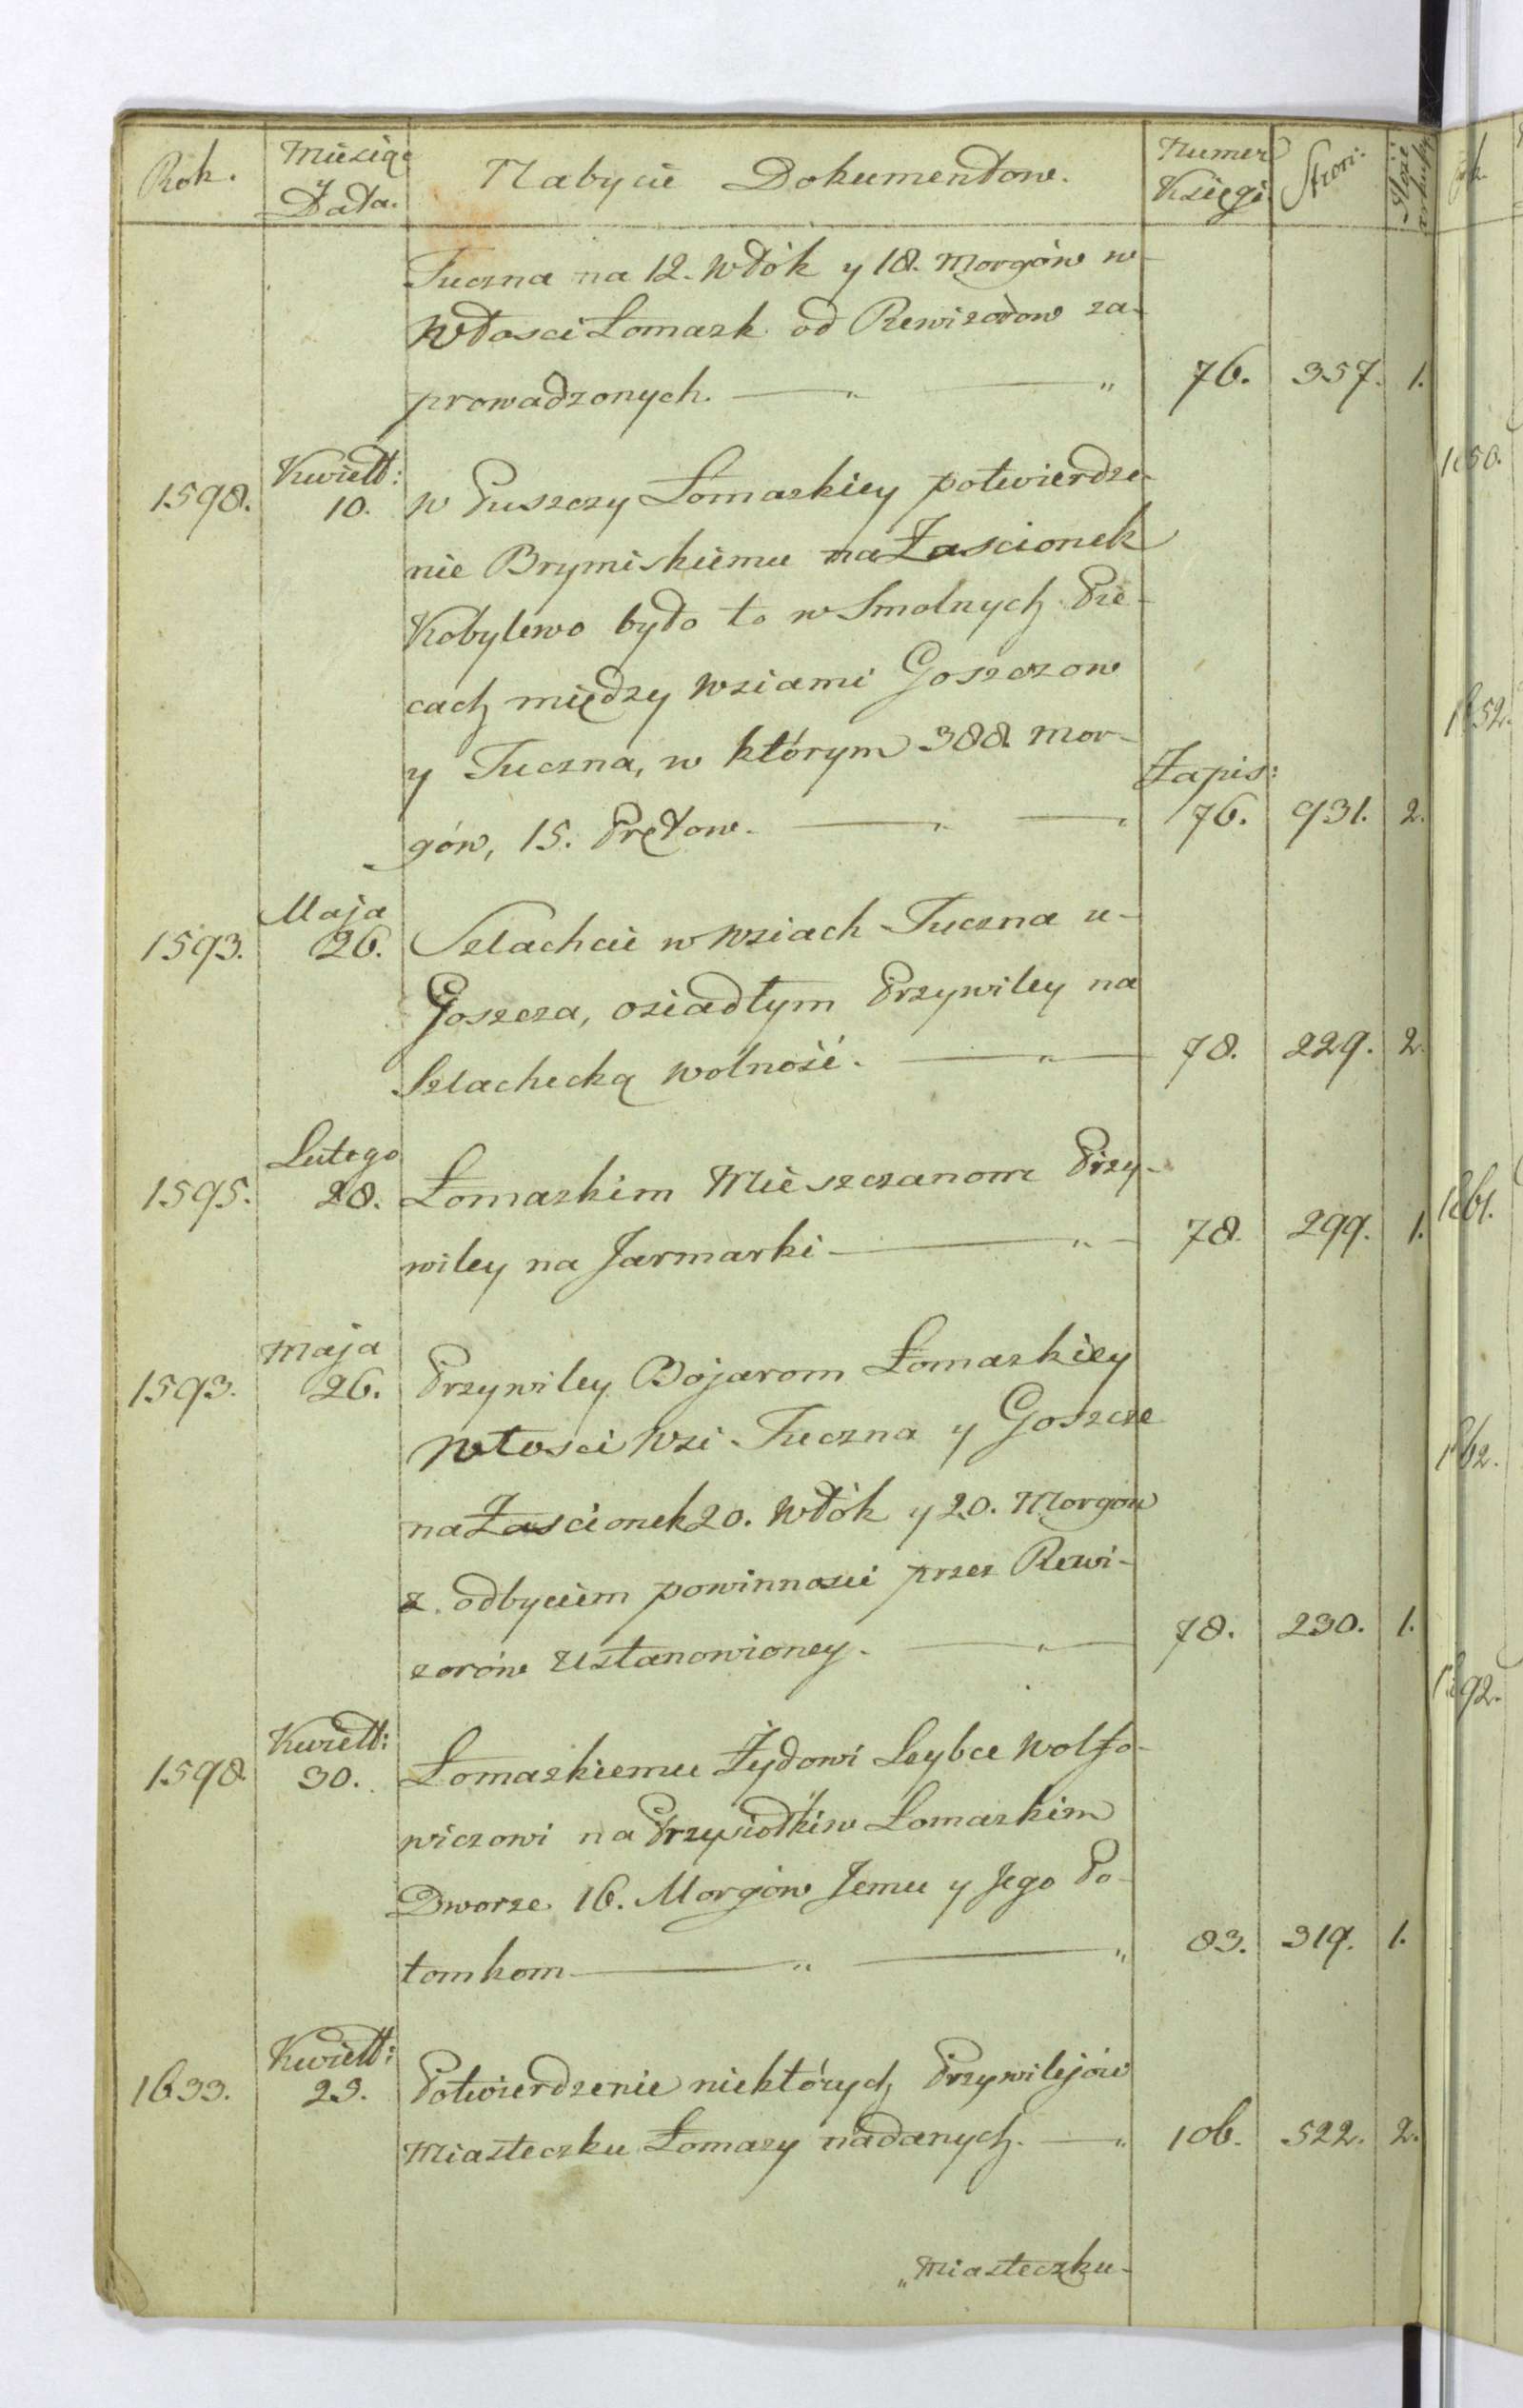 Rok. Miesiąc y Data. Nabycie Dokumentow. Numer Księgi Stron:
Tuczna na 12. Włók y 18. Morgów w
Włosci Łomazk. od Rewizorow za-
prowadzonych. 76. 357. 1.
1598. Kwiett: 10. w Puszczy Łomazkiey potwierdze-
nie Brymiskiemu na Zascionek
Kobylewo było to w Smolnych Pie-
cach między wsiami Goszczow
y Tuczna, w którym 388. Mor-
gów, 15. Prętow. Zapis: 76. 931. 2.
1593. Maja 26. Szlachcie w wsiach Tuczna u-
Goszcza, osiadłym Przywiley na
Szlachecką wolność. 78. 229. 2.
1595. Lutego 28. Łomazkim Mieszczanom Przy-
wiley na Jarmarki 78. 299. 1.
1593. Maja 26. Przywiley Bojarom Łomazkiey
Włosci Wsi Tuczna y Goszcze
na Zascionek 20. Włók y 20. Morgow
z odbyciem powinnosci przez Rewi-
zorów Ustanowioney. 78. 230. 1.
1598. Kwiett: 30. Łomazkiemu Żydowi Leybce Wolfo-
wiczowi na Przysiołki w Łomazkim
Dworze 16. Morgów Jemu y Jego Po-
tomkom 83. 319. 1.
1633. Kwiett: 23. Potwierdzenie niektórych Przywilejów
Miasteczku Łomazy nadanych. 106. 522. 2.
„Miasteczku-